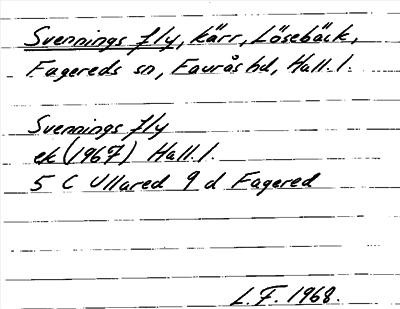 Svennings fly, kärr, Lösebäck,
Fagereds sn, Faurås hd, Hall. l.
Svennings fly
ek (1967) Hall. l.
5 C Ullared 9 d Fagered
L. F. 1968.